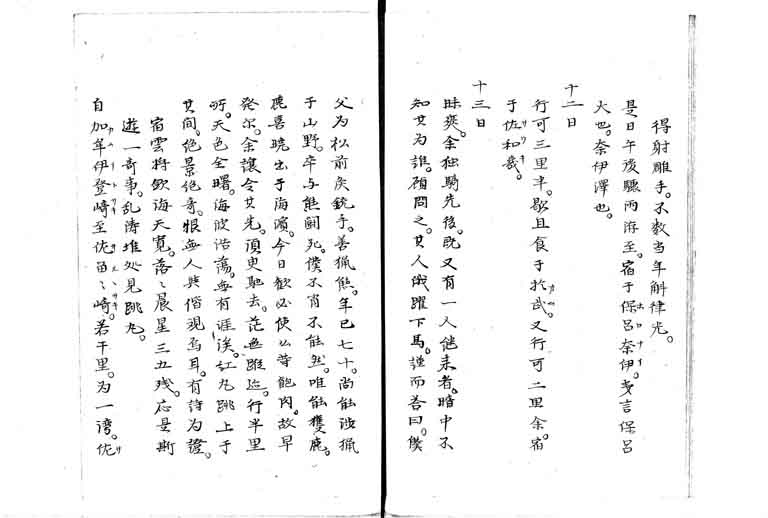 得射雕手。不数当年斛律光。
是日午後驟雨洊至。宿于保呂奈伊。夷言保呂
大也。奈伊澤也。
十二日
行可三里半。歇且食于於武。又行可二里余。宿
于佐和幾。
十三日
昧爽。余独騎先後。既又有一人継来者。暗中不
知其为誰。顧問之。其人俄躍下馬。謹而荅曰。僕
父为松前矦銃手。善猟熊。年已七十。尚能渉猟
于山野。卒与熊闘死。僕不肖不能然。唯能獲鹿。
鹿喜暁出于海濱。今日歓必使公等飽肉。故早
発尔。余讓令其先。須臾馳去。茫無蹤迹。行半里
所。天色全曙。海波浩蕩。無有涯涘。紅丸跳上于
其间。绝景绝奇。恨無人與偕观焉耳。有詩为證。
宿雲将歛海天寛。落〻晨星三五残。応是斯
遊一奇事。乱涛堆処見跳丸。
自加牟伊登﨑至佐留〻﨑。若干里。为一湾。佐